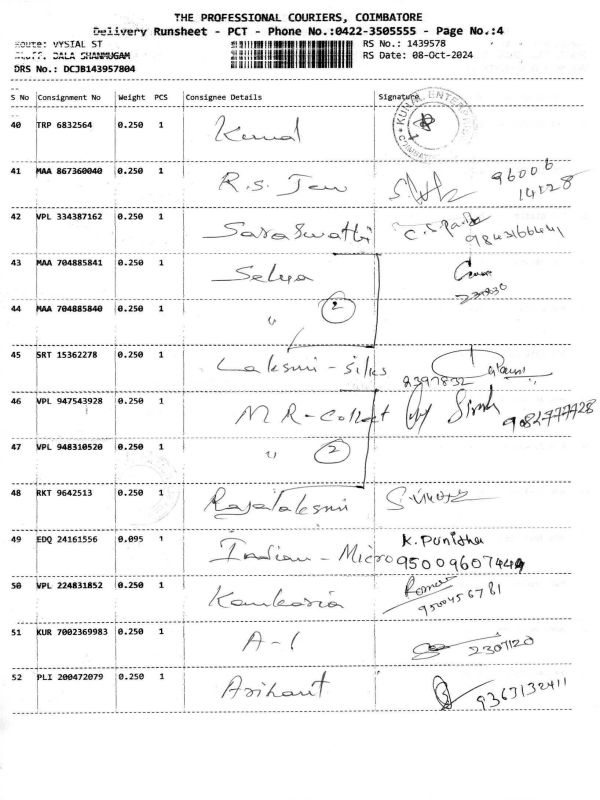 THE PROFESSIONAL COURIERS, COIMBATORE
Delivery Runsheet - PCT - Phone No.:0422-3505555 - Page No.:4
Route: VYSIAL ST RS No.: 1439578
Staff: BALA SHANMUGAM RS Date: 08-Oct-2024
DRS No.: DCJB143957804
S No Consignment No Weight PCS Consignee Details Signature
40 TRP 6832564 0.250 1 Kunal
KUNAL ENTERPRI
41 MAA 867360040 0.250 1 R.S. 96006
14128
42 VPL 334387162 0.250 1 Saraswathi
9843166441
43 MAA 704885841 0.250 1 Selya
231830
44 MAA 704885840 0.250 1 " 2
45 SRT 15362278 0.250 1 Laksmi - Silks 2397832
46 VPL 947543928 0.250 1 M R - Collect
47 VPL 948310520 0.250 1 " 2
48 RKT 9642513 0.250 1 Rajalaksmi
49 EDQ 24161556 0.095 1 Indian - Micro K. Punitha
50 VPL 224831852 0.250 1 Kankaria
9500456781
51 KUR 7002369983 0.250 1 A-1 2307120
52 PLI 200472079 0.250 1 Arihant 9363132411